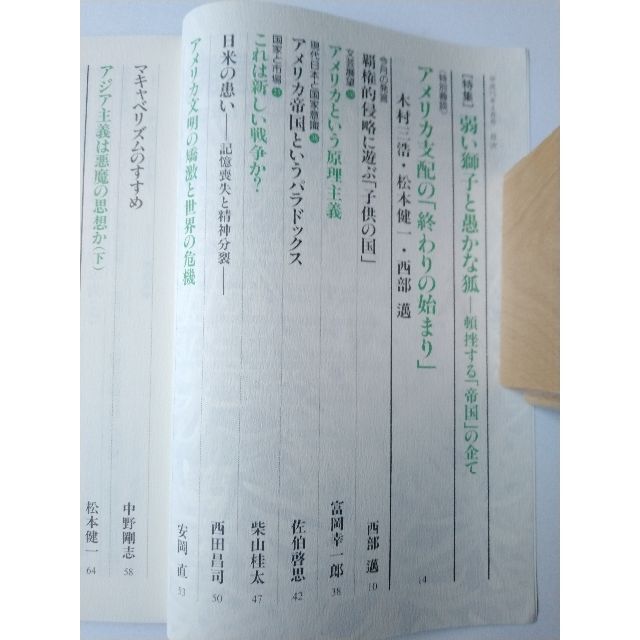 [特集] 弱い獅子と愚かな狐──頓挫する「帝国」の企て
〈特別鼎談〉
アメリカ支配の「終わりの始まり」 14
木村三浩・松本健一・西部 邁
今月の発言
覇権的侵略に遊ぶ「子供の国」 西部 邁 10
文芸展望
アメリカという原理主義 富岡幸一郎 38
現代日本と国家意識
アメリカ帝国というパラドックス 佐伯啓思 42
国家と市場
これは新しい戦争か? 柴山桂太 47
日米の患い──記憶喪失と精神分裂── 西田昌司 50
アメリカ文明の矯激と世界の危機 安岡 直 53
マキャベリズムのすすめ 中野剛志 58
アジア主義は悪魔の思想か(下) 松本健一 64